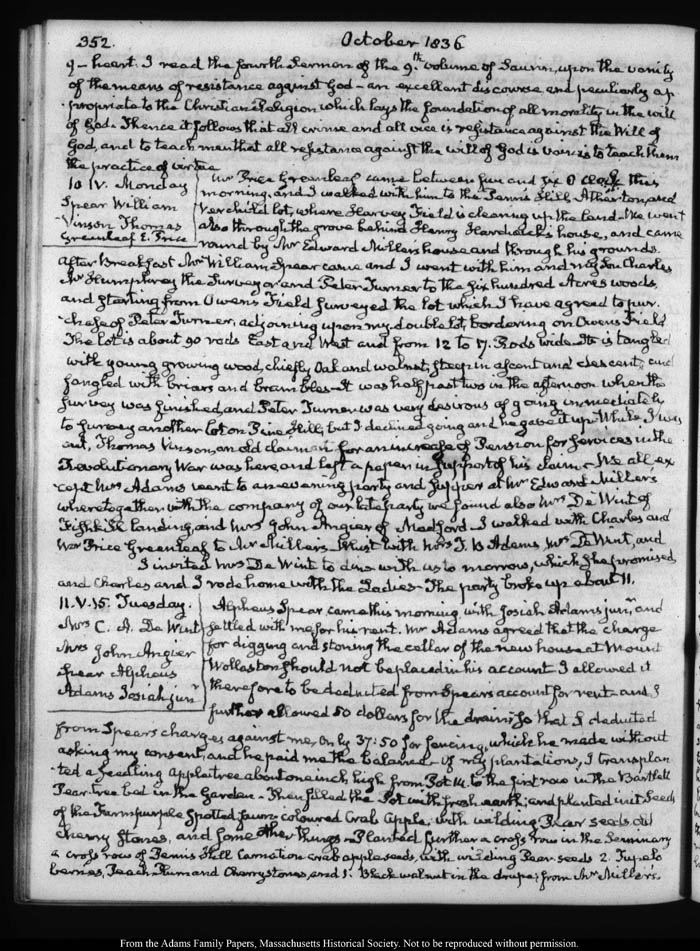 352. October 1836
9 - heart. I read the fourth Sermon of the 9.th volume of Saurin, upon the vanity
of the means of resistance against God - an excellent discourse and peculiarly ap
propriate to the Christian Religion which lays the foundation of all morality in the will
of God. Thence it follows that all crime and all vice is resistance against the Will of
God, and to teach men that all resistance against the will of God is vain is to teach them
the practice of virtue
10 IV. Monday
Spear William
Vinson Thomas
Greenleaf E. Price
Mr Price Greenleaf came between five and six O'Clock this
morning, and I walked with him to the Penn's Hill Atherton, and
Verchild lot, where Harvey Field is clearing up the land. We went
also through the grove behind Henry Hardwick's house, and came
round by Mr Edward Miller's house and through his grounds.
After Breakfast Mr William Spear came and I went with him and my Son Charles
Mr Humphrey the Surveyor and Peter Turner to the six hundred Acres woods,
and starting from Owens Field surveyed the lot which I have agreed to pur-
chase of Peter Turner, adjoining upon my double lot, bordering on Owens Field
The lot is about 90 rods East and West and from 12 to 17. Rods wide. It is tangled
with young growing wood, chiefly Oak and walnut, steep in ascent and descent, and
fangled with briars and brambles - It was half past two in the afternoon when the
survey was finished, and Peter Turner was very desirous of going immediately
to survey another lot on Pine Hill, but I declined going and he gave it up. While I was
out, Thomas Vinson, an old claimant for an increase of Pension for services in the
Revolutionary War was here, and left a paper in support of his claim - We all ex
cept Mrs Adams went to an evening party and supper at Mr Edward Miller's
where together with the company of our late party we found also Mrs De Wint of
Fishkill landing, and Mrs John Angier of Medford - I walked with Charles and
Mr Price Greenleaf to Mr Miller's - Whist with Mrs T. B Adams, Mrs De Wint, and
I invited Mrs De Wint to dine with us to morrow, which she promised,
and Charles and I rode home with the Ladies - The party broke up about 11.
11. V. 15. Tuesday.
Mrs C. A. De Wint
Mrs John Angier
Spear Alpheus
Adams Josiah junr
Alpheus Spear came this morning with Josiah Adams junr, and
settled with me for his rent. Mr Adams agreed that the charge
for digging and stoning the cellar of the new house at Mount
Wollaston should not be placed in his account I allowed it
therefore to be deducted from Spears account for rent - and I
further allowed 50 dollars for the drain; so that I deducted
from Spears charges against me, only 37:50 for fencing, which he made without
asking my consent, and he paid me the balance - Of my plantations, I transplan
ted a seedling appletree about one inch high from Pot 14. to the first row in the Bartlett
Pear-tree bed in the Garden - Then filled the Pot with fresh earth; and planted in it Seeds
of the Farm purple spotted fawn-coloured Crab Apple, with wilding Pear seeds old
cherry stones, and some other things - Planted further a cross row in the Seminary
a cross row of Penns Hill Carnation crab apple seeds, with wilding Pear seeds 2. Tupelo
berries, Peach Plum and Cherry stones, and 1. Black walnut in the drupe; from Mr Miller's.
From the Adams Family Papers, Massachusetts Historical Society. Not to be reproduced without permission.